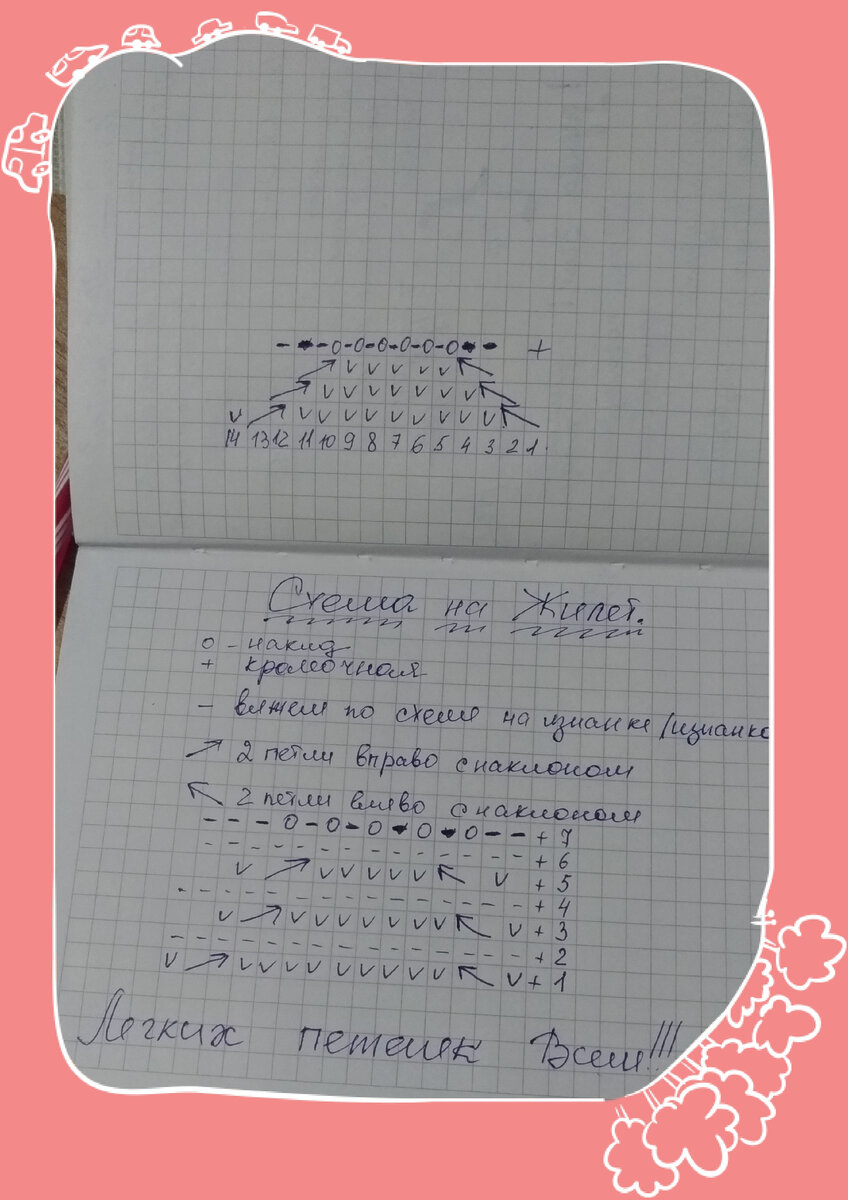 - - - 0 - 0 - 0 - 0 - 0 - 0 - - +
↗ v v v v v ↖
↗ v v v v v v v ↖
v ↗ v v v v v v v v v ↖
14 13 12 11 10 9 8 7 6 5 4 3 2 1.
Схема на Жилет.
о - накид
+ кромочная
- вяжем по схеме на изнанке/изнанко
↗ 2 петли вправо с наклоном
↖ 2 петли влево с наклоном
- - - 0 - 0 - 0 - 0 - 0 - - + 7
- - - - - - - - - - - - - - + 6
v ↗ v v v v v ↖ v + 5
- - - - - - - - - - - - - - + 4
v ↗ v v v v v v v ↖ v + 3
- - - - - - - - - - - - - - - + 2
v ↗ v v v v v v v v v ↖ v + 1
Легких петелек Всем!!!